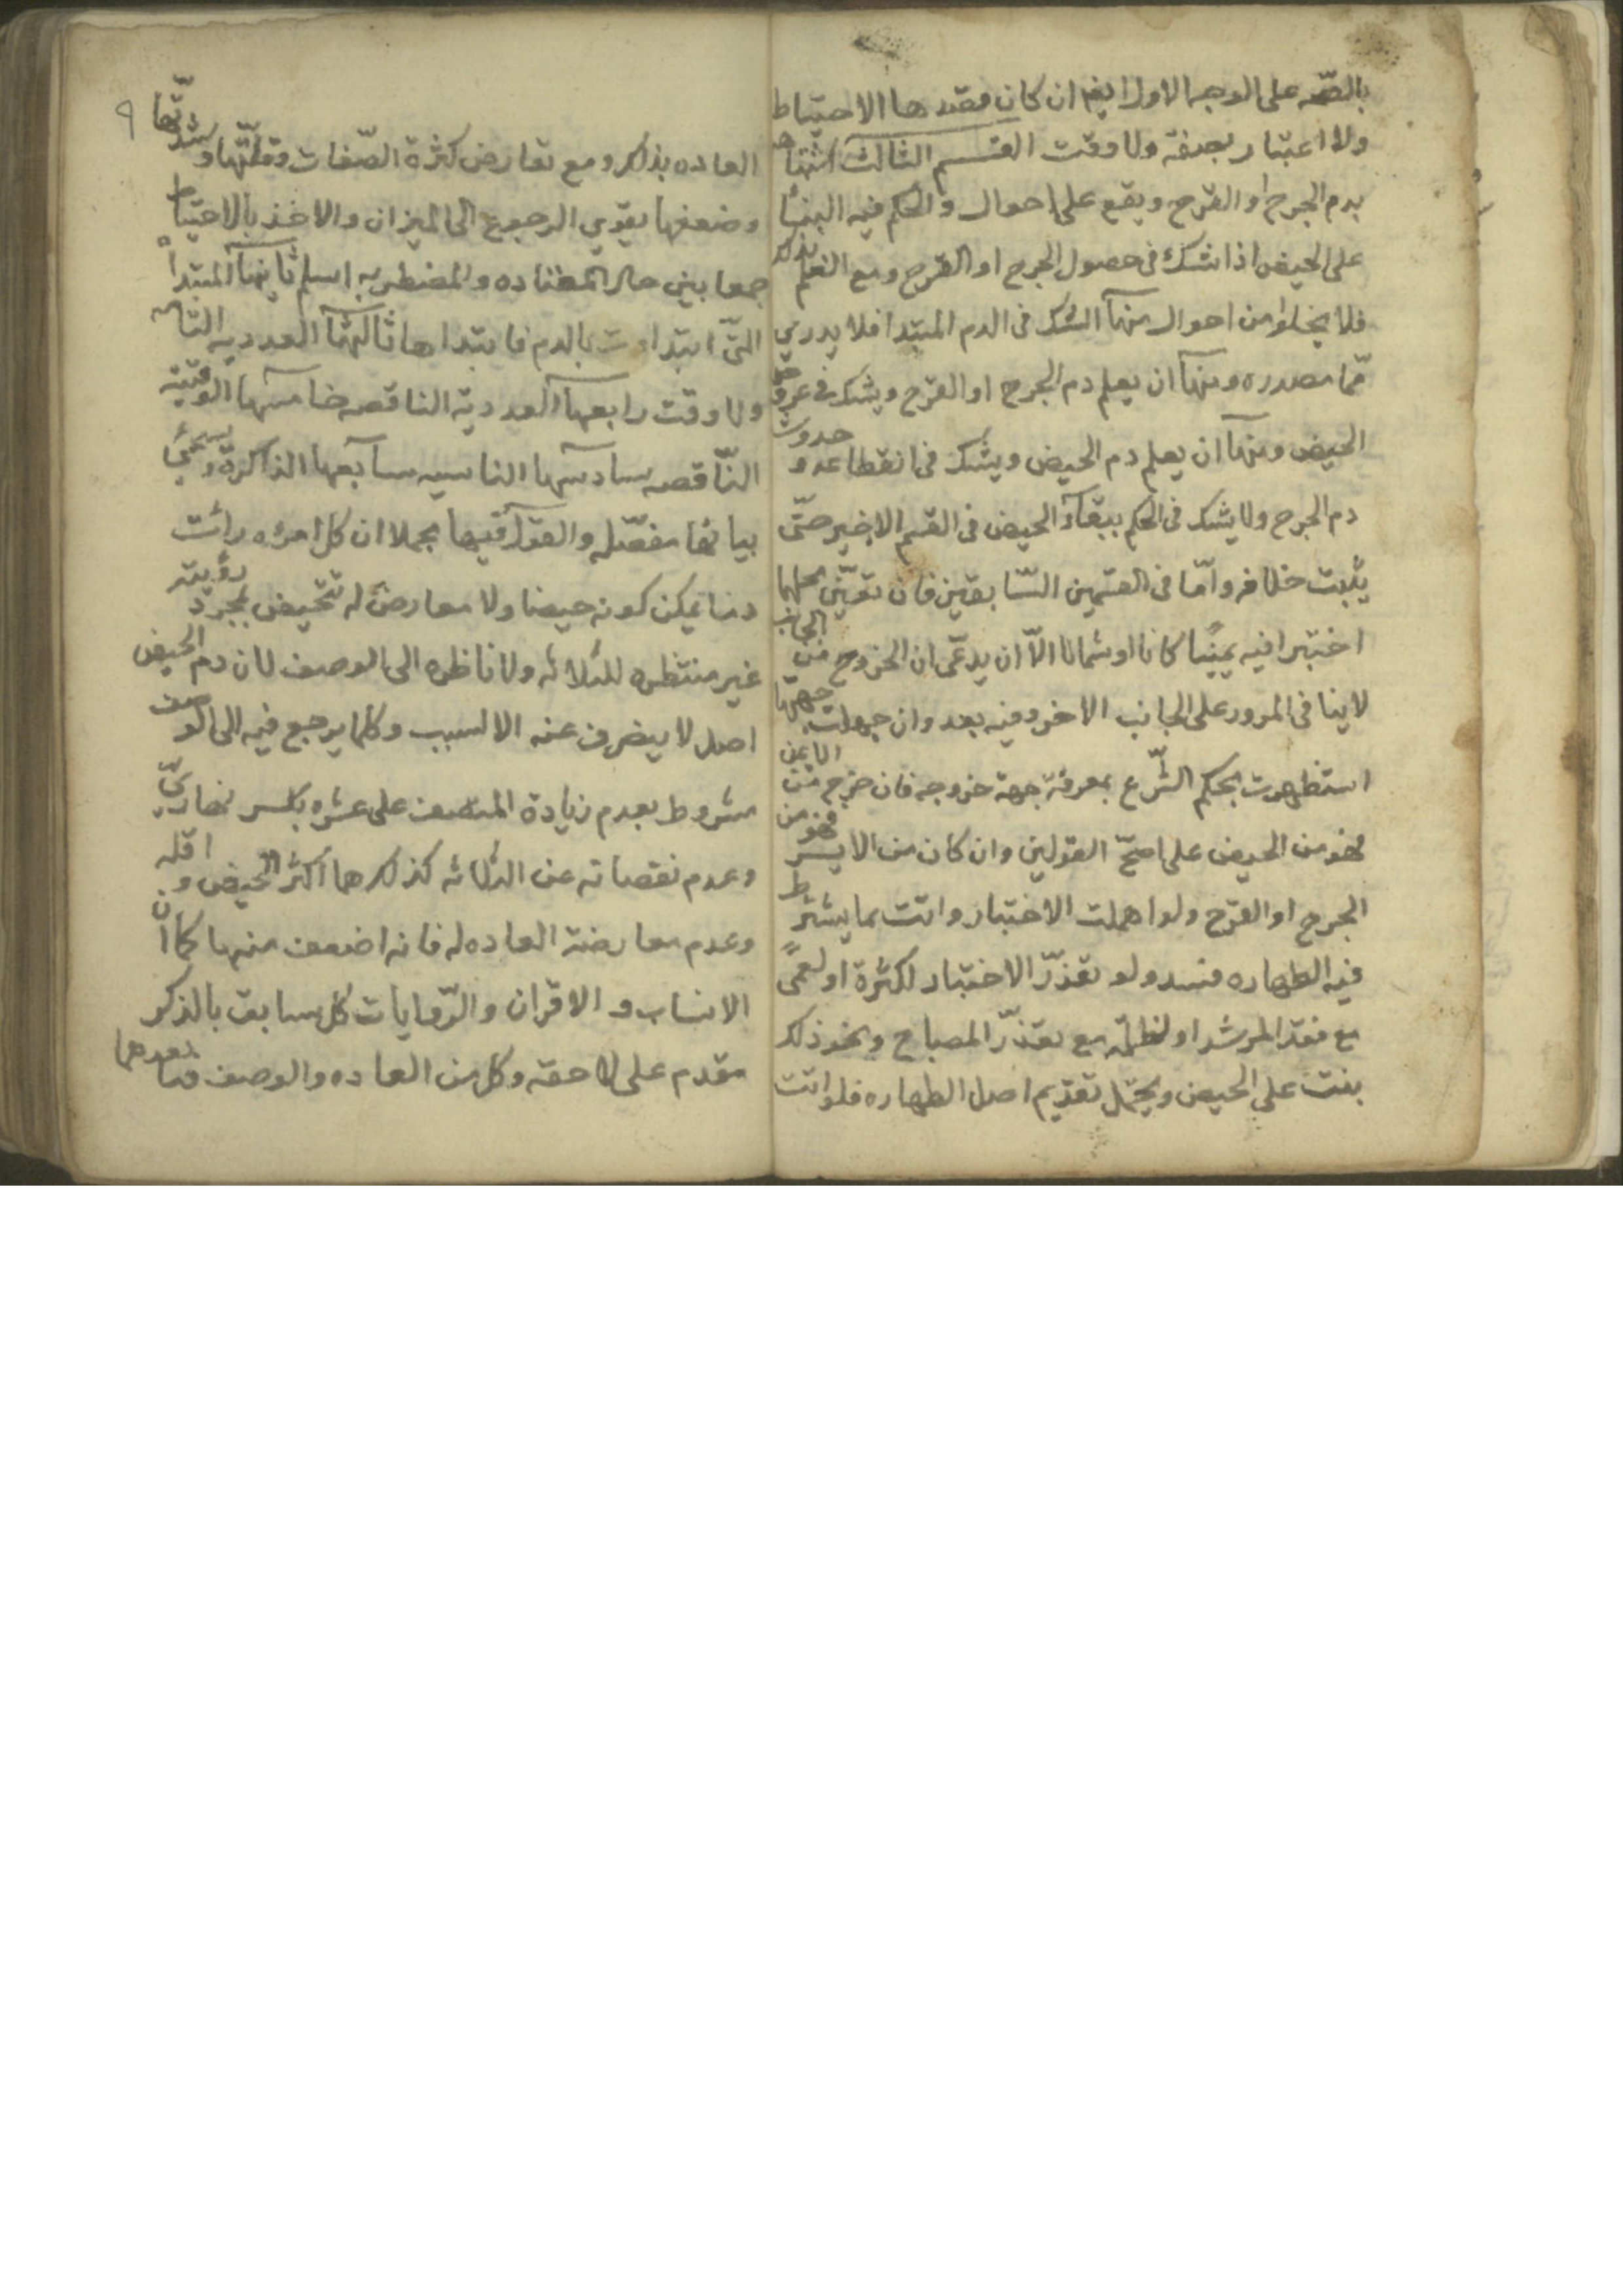 بالصحه على الوجه الاول ايضا ان كان مقصدها الاحتياط
ولا اعتبار بصفة ولا وقت القسم الثالث اشتباهه
بدم الجرح او القرح ويقع على احوال والحكم فيه البناء
على الحيض اذا شك في حصول الجرح او القرح ومع العلم بذلك
فلا يخلوا من احوال منها الشك في الدم المبتدا فلا يدري
مما مصدره ومنها ان يعلم دم الجرح او القرح ويشك في عروض
الحيض ومنها ان يعلم دم الحيض ويشك في انقطاعه وحدوث
دم الجرح ولا يشك في الحكم ببقاء الحيض في القسم الاخير حتّى
يثبت خلافه وامّا في القسمين السّابقين فان تعيّن محلهما
اختبرا فيه يمينا كانا او شمالا الّا ان يدعّى ان الخروج من الجانب
لا ينافى المرور على الجانب الاخر وفيه بعد وان جهلت جهتها
استظهرت بحكم الشّرع بمعرفة جهة خروجه فان خرج من الايمن
فهو من الحيض على اصحّ القولين وان كان من الايسر فهو من
الجرح او القرح ولو اهملت الاختبار واتت بما يشترط
فيه الطهاره فسد ولو تعذّر الاختبار لكثرة او لعمًى
مع فقد المرشد او لظلمة مع تعذّر المصباح ونحو ذلك
بنت على الحيض ويحتمل تقديم اصل الطهاره فلو اتت
٩
العاده بذلك ومع تعارض كثرة الصّفات وقلّتها وشدّتها
وضعفها يقوي الرجوع الى الميزان والاخذ بالاحتياط
جمعا بين حال المعتاده والمضطربه اسلم ثانيها المبتداة
التّى ابتداءت بالدم فابتداها ثالثها العدديه التامه
ولا وقت رابعها العددية الناقصه خامسها الوقتيّه
النّاقصه سادسها الناسيه سابعها الذاكرة وسيجئ
بيانها مفصّله والقول فيها مجملا ان كل امرءه رات
دما يمكن كونه حيضا ولا معارض له تتحيض بمجرد رؤيته
غير منتظره للثلاثه ولا ناظره الى الوصف لان دم الحيض
اصل لا يصرف عنه الا لسبب وكلما يرجع فيه الى الوصف
مشروط بعدم زيادة المتصف على عشره بكسر نهاري
وعدم نقصانه عن الثلاثه كذلك هما اكثر الحيض واقله
وعدم معارضة العاده له فانه اضعف منها كما ان
الانساب والاقران والرّوايات كل سابق بالذكر
مقدم على لاحقه وكل من العاده والوصف وما بعدهما